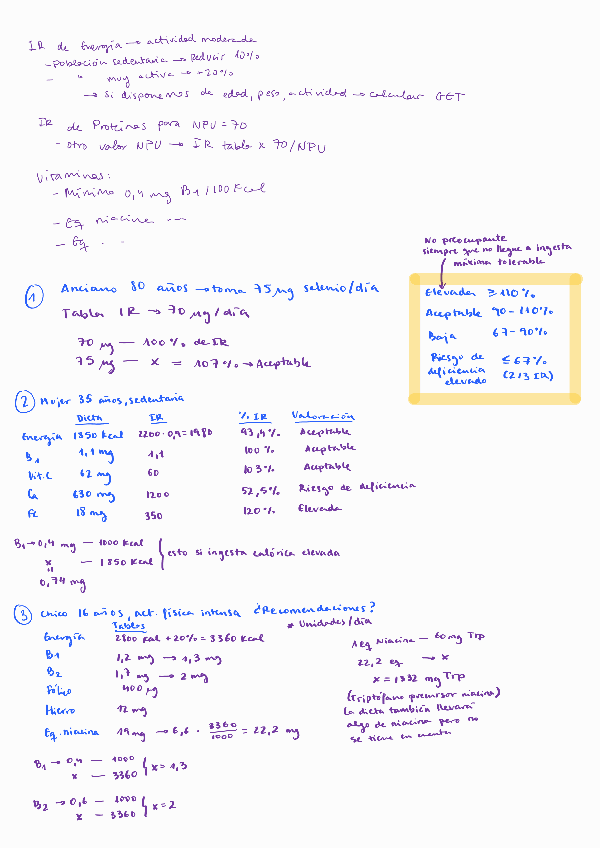 IR de Energía → actividad moderada
- Población sedentaria → Reducir 10%
- " muy activa → +20%
→ Si disponemos de edad, peso, actividad → calcular GET
IR de Proteínas para NPU = 70
- otro valor NPU → IR tabla x 70/NPU
Vitaminas:
- Mínimo 0,4 mg B1/100 Kcal
- Eq niacina ...
- Eq ...
No preocupante
siempre que no llegue a ingesta
máxima tolerable
Elevada ≥ 110%
Aceptable 90-110%
Baja 67-90%
Riesgo de deficiencia elevado ≤ 67% (2/3 IR)
① Anciano 80 años → toma 75 µg selenio/día
Tabla IR → 70 µg/día
70 µg — 100% de IR
75 µg — x = 107% → Aceptable
② Mujer 35 años, sedentaria
Dieta IR % IR Valoración
Energía 1850 Kcal 2200·0,9=1980 93,4% Aceptable
B1 1,1 mg 1,1 100% Aceptable
Vit.C 62 mg 60 103% Aceptable
Ca 630 mg 1200 52,5% Riesgo de deficiencia
Fe 18 mg 350 120% Elevada
B1 → 0,4 mg — 1000 Kcal
x — 1850 Kcal } esto si ingesta calórica elevada
0,74 mg
③ Chico 16 años, act. física intensa ¿Recomendaciones?
Tablas * Unidades/día
Energía 2800 kcal + 20% = 3360 Kcal
B1 1,2 mg → 1,3 mg
B2 1,7 mg → 2 mg
Fólico 400 µg
Hierro 12 mg
Eq. niacina 19 mg → 6,6 · 3360/1000 = 22,2 mg
1 eq Niacina — 60 mg Trp
22,2 eq → x
x = 1332 mg Trp
(Triptófano precursor niacina)
La dieta también llevará
algo de niacina pero no
se tiene en cuenta
B1 → 0,4 — 1000
x — 3360 } x = 1,3
B2 → 0,6 — 1000
x — 3360 } x = 2